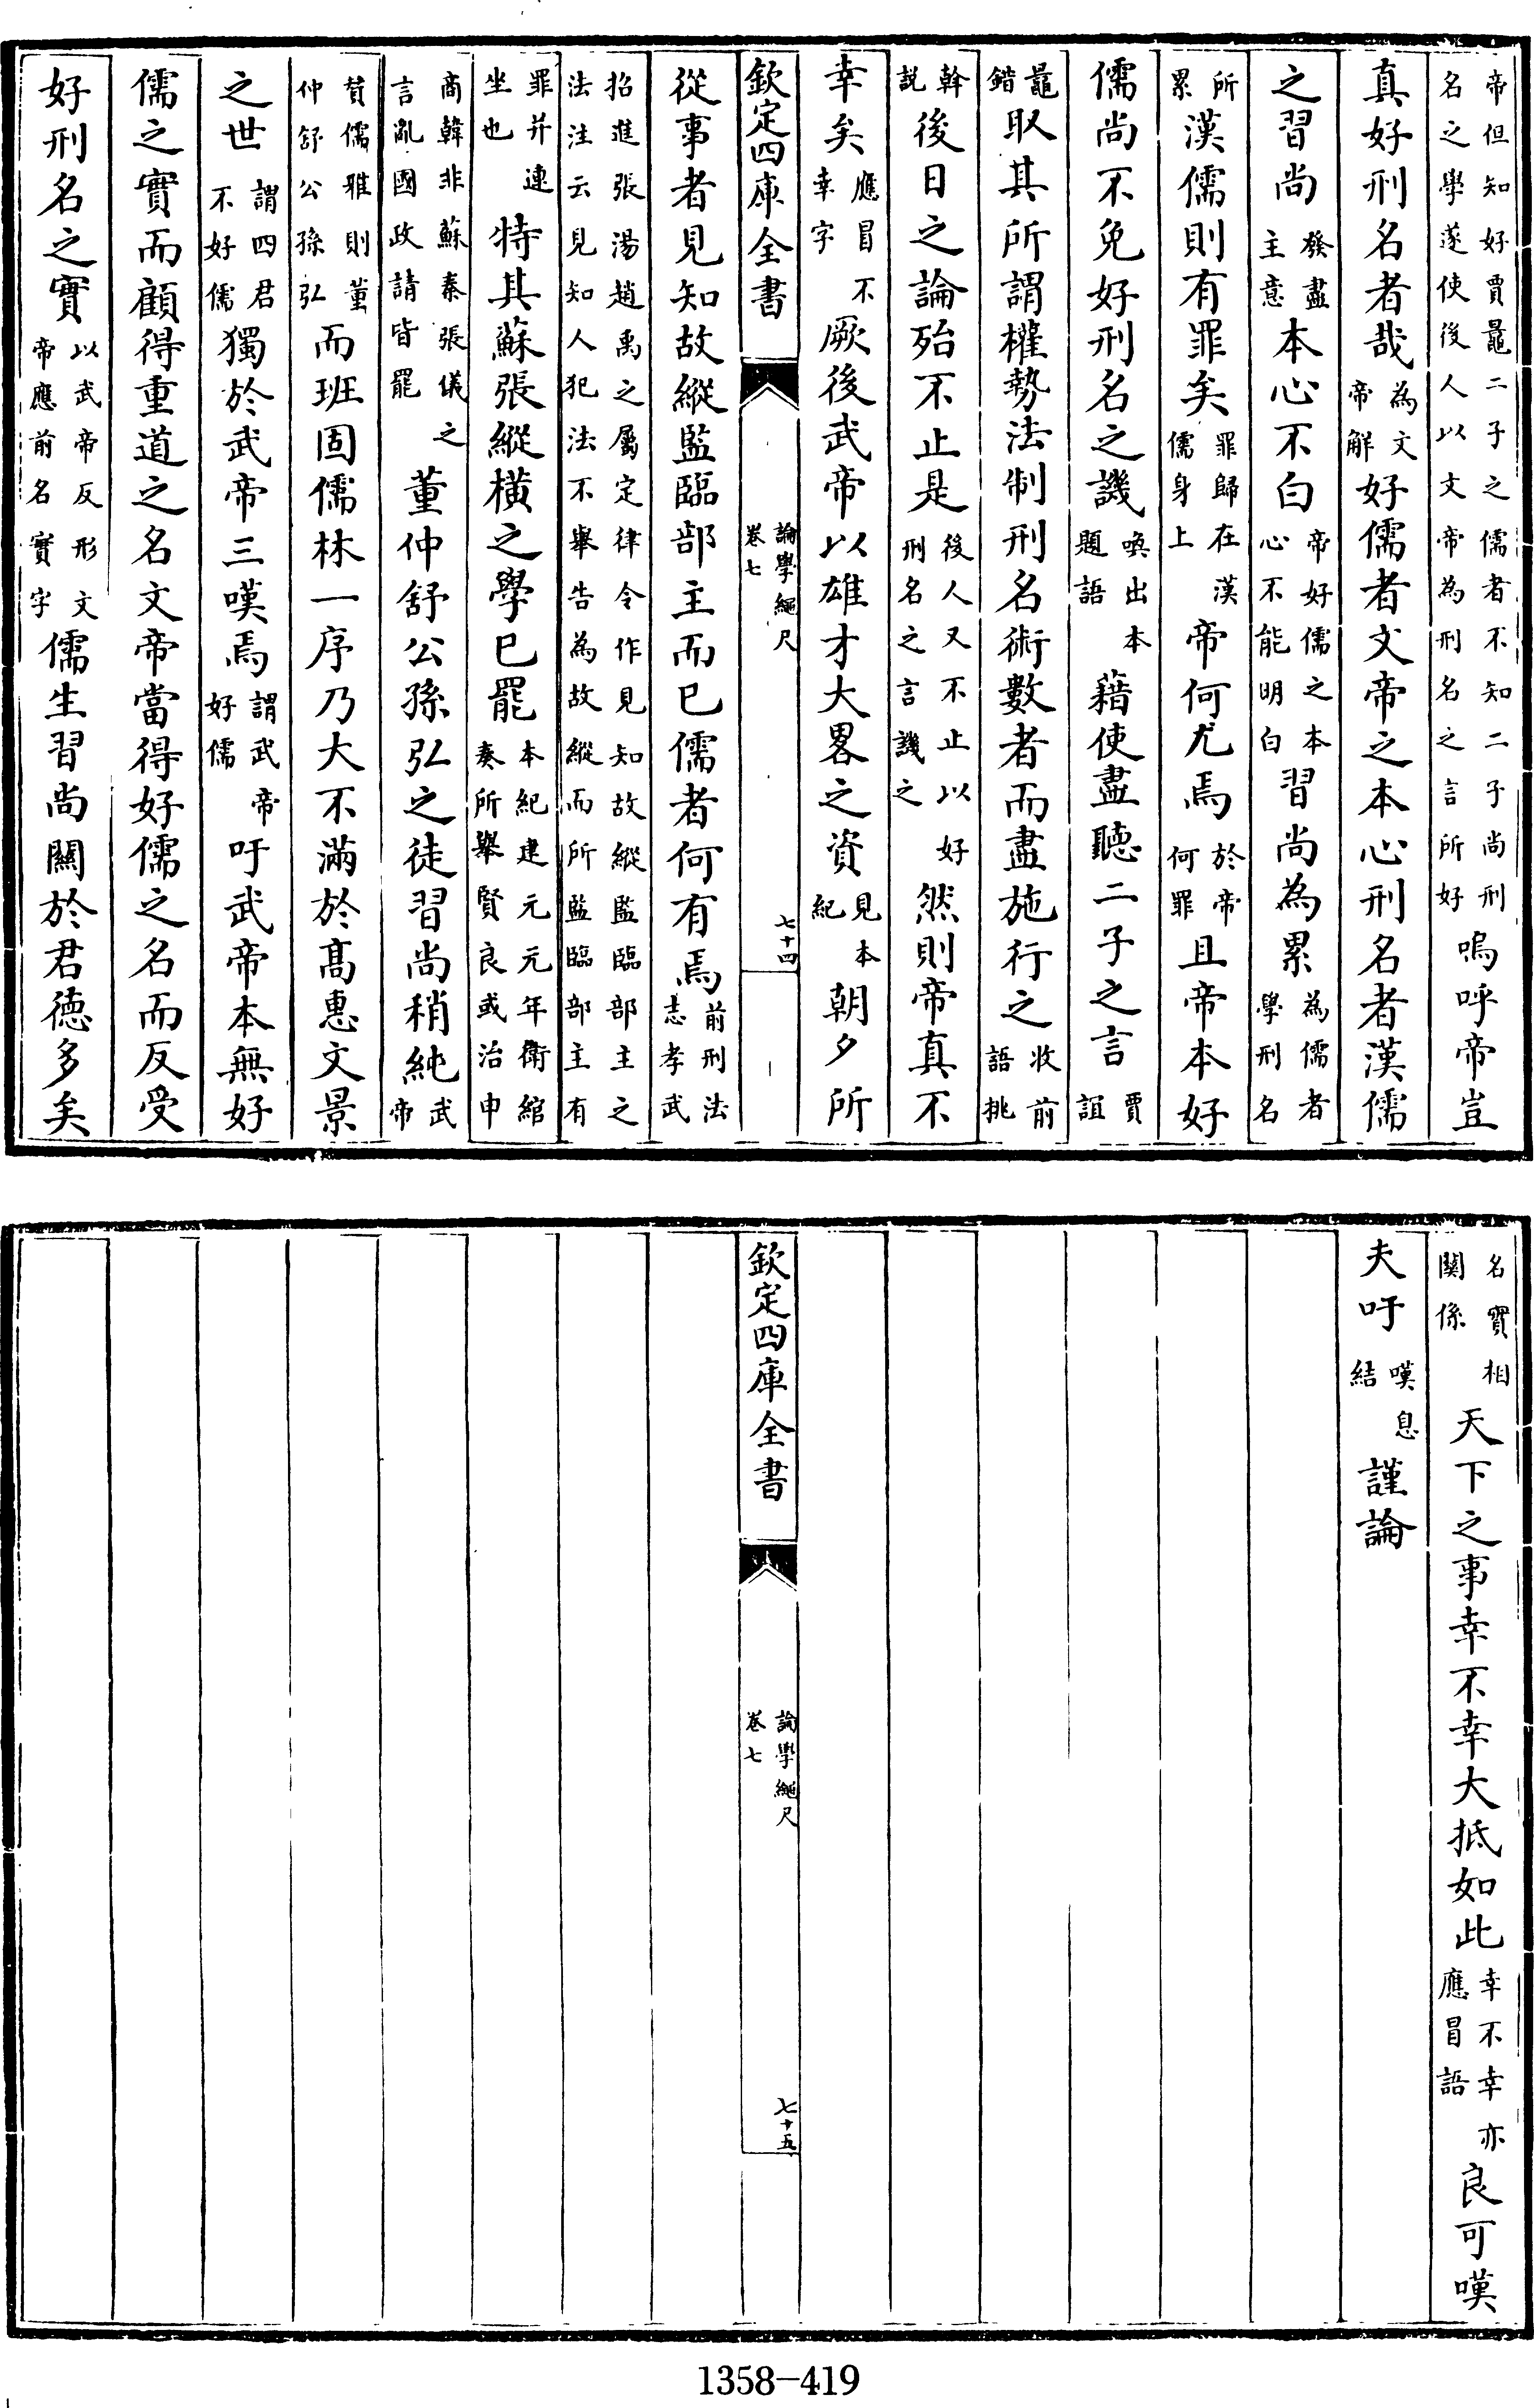 帝但知好賈鼂二子之儒者不知二子尚刑名之學遂使後人以文帝為刑名之言所好嗚呼帝豈
真好刑名者哉為文帝解好儒者文帝之本心刑名者漢儒
之習尚發盡主意本心不白帝好儒之本心不能明白習尚為累為儒者學刑名
所累漢儒則有罪矣罪歸在漢儒身上帝何尤焉於帝何罪且帝本好
儒尚不免好刑名之譏喚出本題語藉使盡聽二子之言賈誼
鼂錯取其所謂權勢法制刑名術數者而盡施行之收前語挑
斡説後日之論殆不止是後人又不止以好刑名之言譏之然則帝真不
幸矣應冒不幸字厥後武帝以雄才大畧之資見本紀朝夕所
欽定四庫全書 論學繩尺 卷七 七十四
從事者見知故縱監臨部主而已儒者何有焉前刑法志孝武
招進張湯趙禹之屬定律令作見知故縱監臨部主之法注云見知人犯法不舉告為故縱而所監臨部主有
罪并連坐也特其蘇張縱橫之學已罷本紀建元元年衛綰奏所舉賢良或治申
商韓非蘇秦張儀之言亂國政請皆罷董仲舒公孫弘之徒習尚稍純武帝
贊儒雅則董仲舒公孫弘而班固儒林一序乃大不滿於髙惠文景
之世謂四君不好儒獨於武帝三嘆焉謂武帝好儒吁武帝本無好
儒之實而顧得重道之名文帝當得好儒之名而反受
好刑名之實以武帝反形文帝應前名實字儒生習尚關於君德多矣
名實相關係天下之事幸不幸大抵如此幸不幸亦應冒語良可嘆
夫吁嘆息結謹論
欽定四庫全書 論學繩尺 卷七 七十五
1358-419